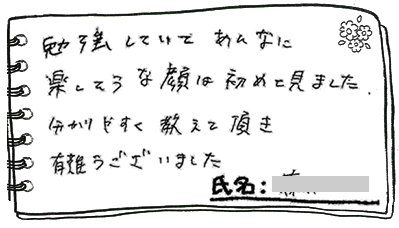 勉強していて あんなに
楽しそうな顔は初めて見ました.
分かりやすく教えて頂き
有難うございました
氏名: